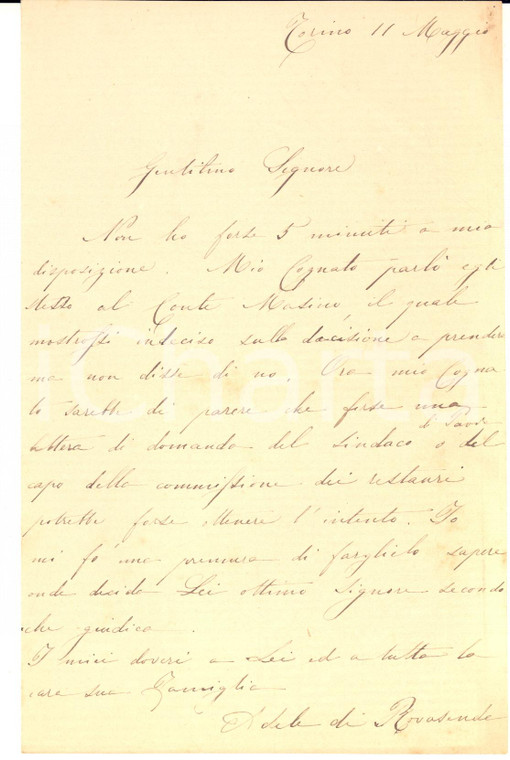 Torino 11 Maggio
Gentilmo Signore
Non ho forse 5 minuti a mia
disposizione. Mio Cognato parlò egli
stesso al Conte Masino il quale
mostrossi indeciso sulla decisione a prendere
ma non disse di no. Ora mio Cogna-
to sarebbe di parere che forse una
lettera di domanda del Sindaco di o del
capo della commissione dei restauri
potrebbe forse ottenere l'intento. Io
mi fo una premura di farglielo sapere
onde decida Lei ottimo Signore secondo
che giudica.
I miei doveri a Lei ed a tutta la
cara sua Famiglia
Adele di Rovasenda